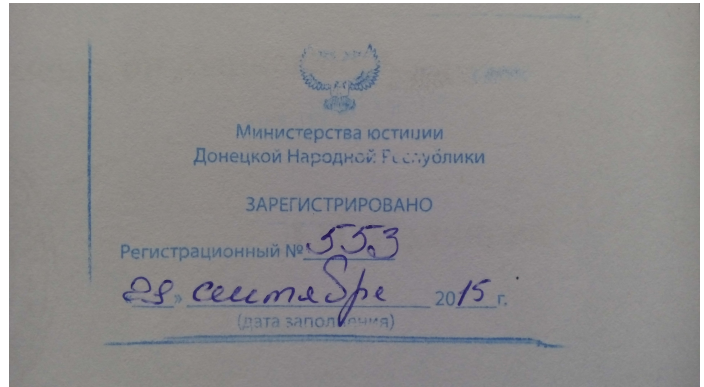 Министерства юстиции
Донецкой Народной Республики
ЗАРЕГИСТРИРОВАНО
Регистрационный № 553
» сентября 2015 г.
(дата заполнения)